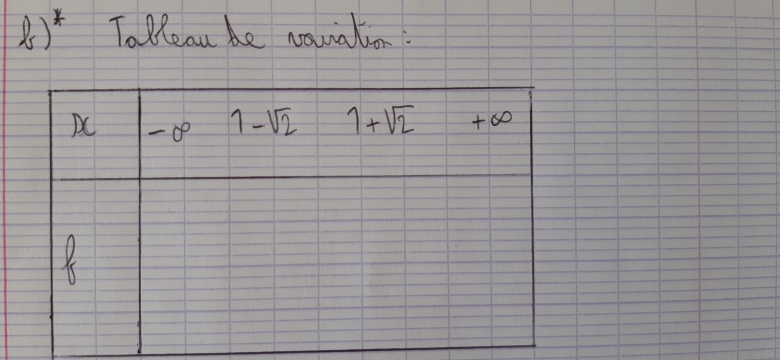 b)* Tableau de variation :
x -∞ 1-√2 1+√2 +∞
f